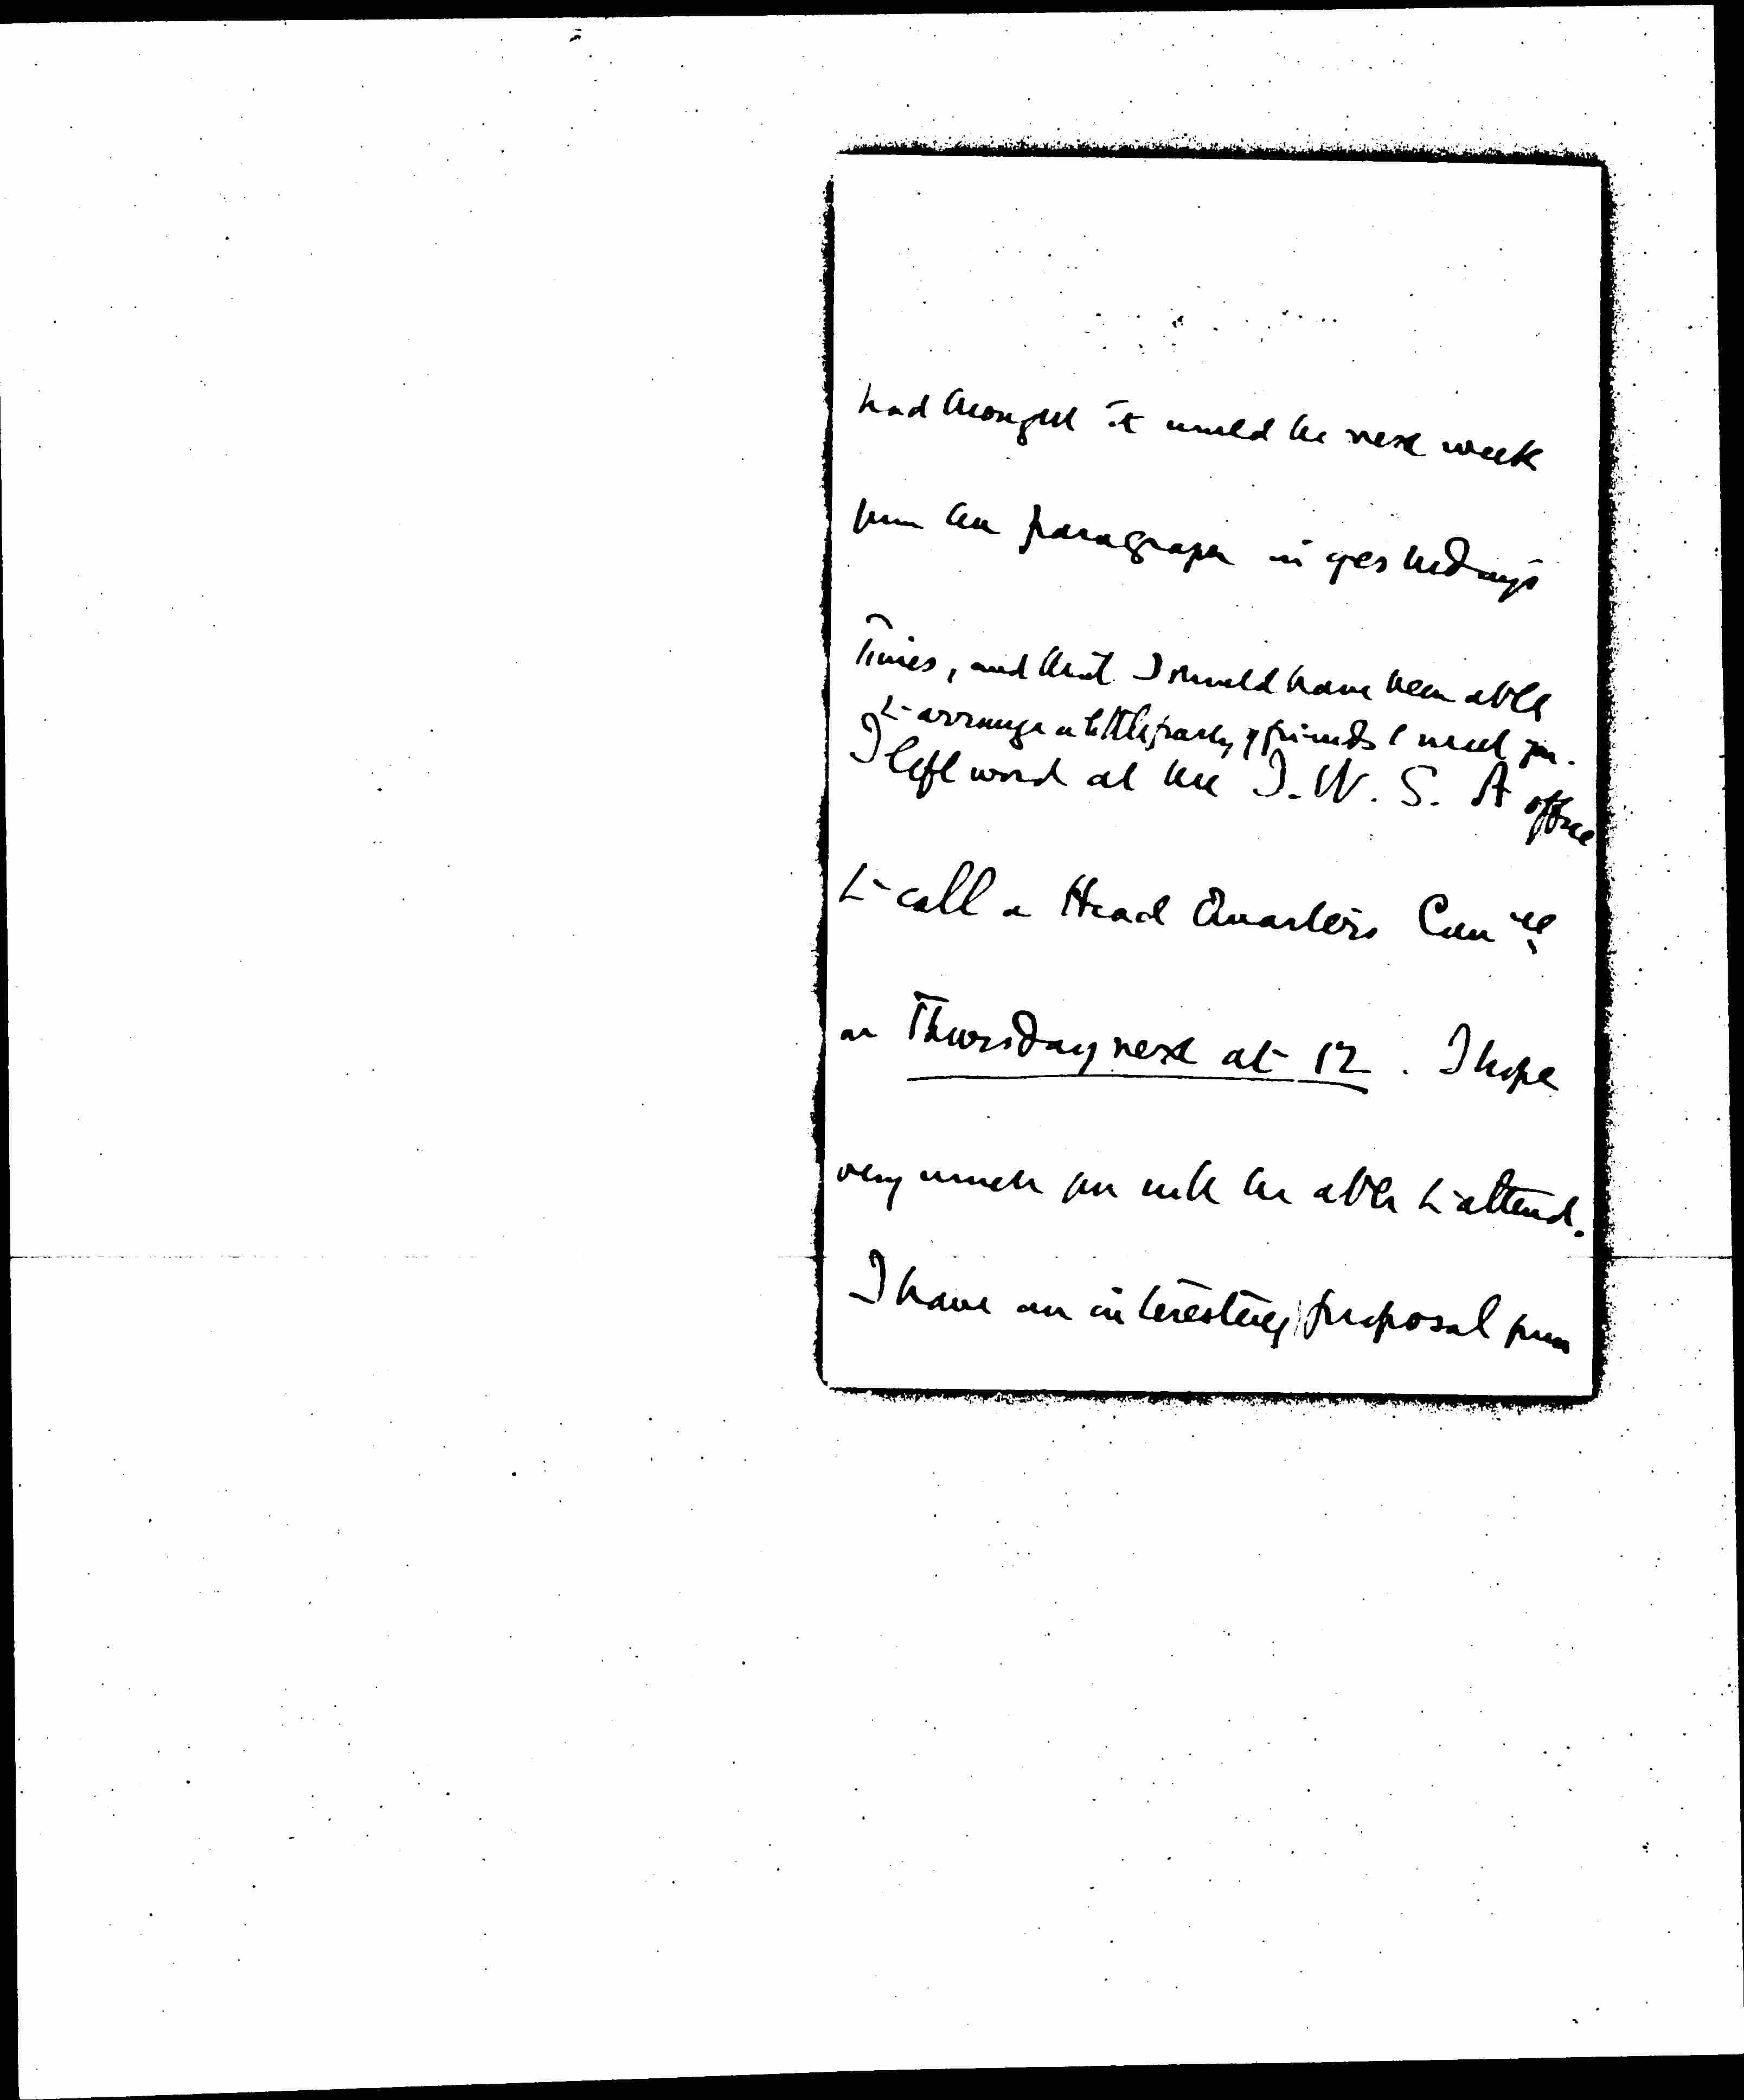 had thought it would be next week
from the paragraph in yesterday's
Times, and that I should have been able
to arrange a little party of friends to meet you.
I left word at the I. W. S. A office
to call a Head Quarters Com'ee
on Thursday next at 12. I hope
very much you will be able to attend.
I have an interesting proposal from